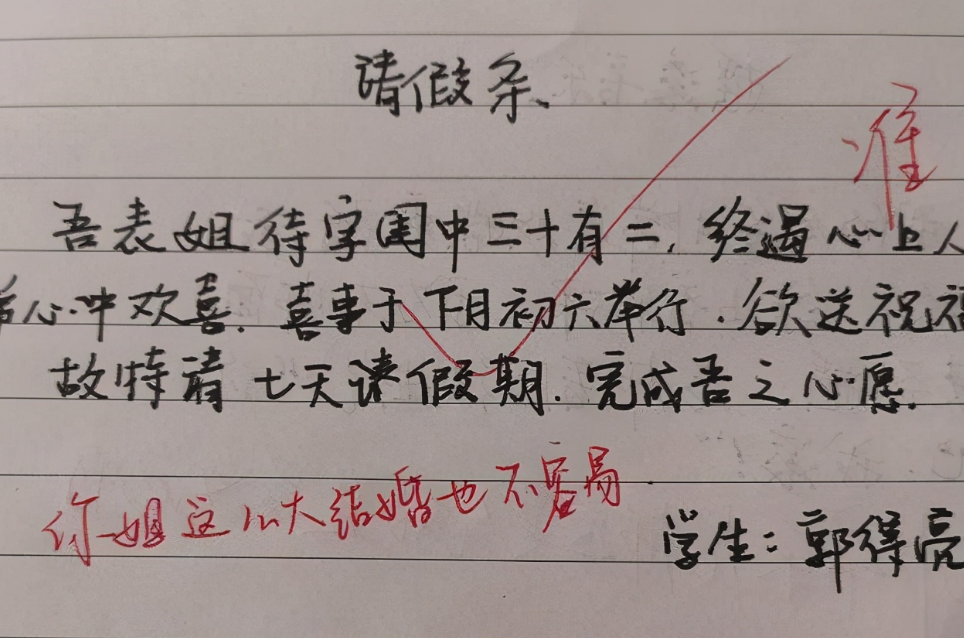 请假条、
准
吾表姐待字闺中三十有二，终遇心上人
心中欢喜．喜事于下月初六举行．欲送祝福
故特请七天请假期．完成吾之心愿．
你姐这么大结婚也不容易
学生：郭得亮